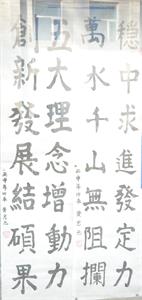 穩中求進發定力
萬水千山無阻攔
丙申年
五大理念增動力
創新發展結碩果
丙申年